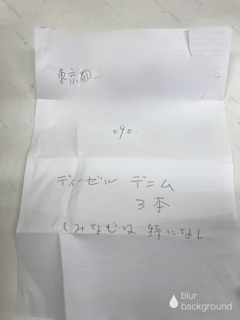 東京都
090
ディーゼル デニム
3本
しみなどは 特になし
blur
background